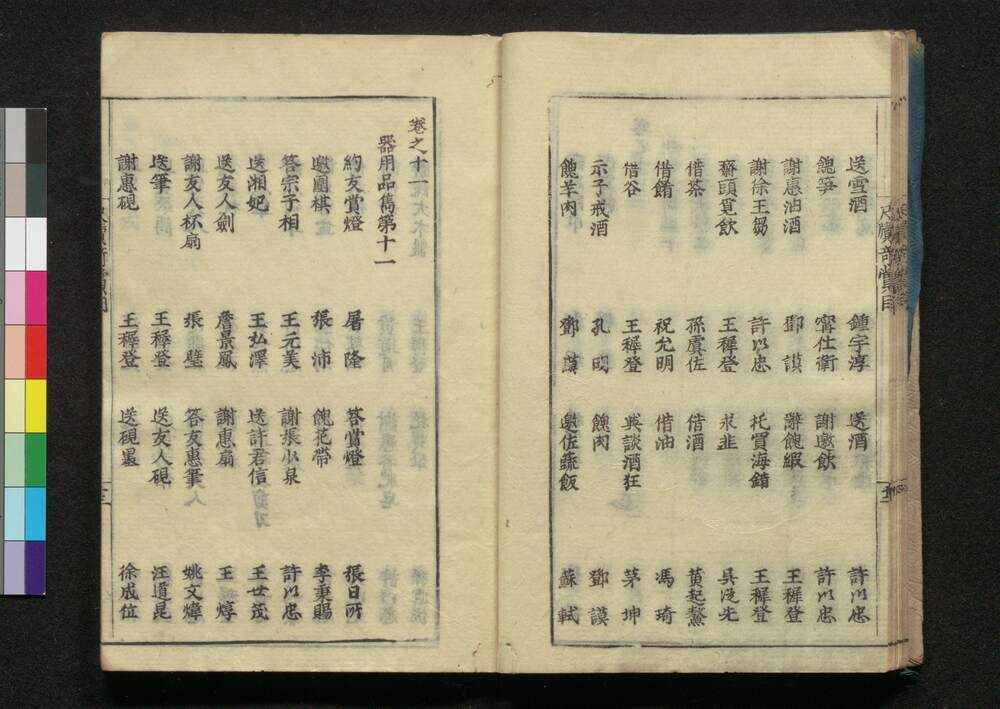 送雪酒　鍾宇淳　送酒　許以忠
餽笋　甯仕衛　謝邀飲　許以忠
謝惠油酒　鄧謨　辭餽緞　王穉登
謝徐王芻　許以忠　托買海錯　王穉登
齋頭覓飲　王穉登　求韭　吳從先
借茶　孫虞佐　借酒　黄起鰲
借餚　祝允明　借油　馮琦
借谷　王穉登　與談酒狂　茅坤
示子戒酒　孔明　餽肉　鄧謨
餽羊肉　鄧謨　邀佐蔬飯　蘇軾
卷之十一
器用品雋第十一
約友賞燈　屠隆　答賞燈　張日所
邀圍棋　張沛　餽花帶　李東賜
答宗子相　王元美　謝張小泉　許以忠
送湘妃　王弘澤　送許君信　王世茂
送友人劍　詹景鳳　謝惠扇　王焞
謝友人杯扇　張壁　答友惠筆　姚文煒
送筆　王穉登　送友人硯　汪道昆
謝惠硯　王穉登　送硯墨　徐成位